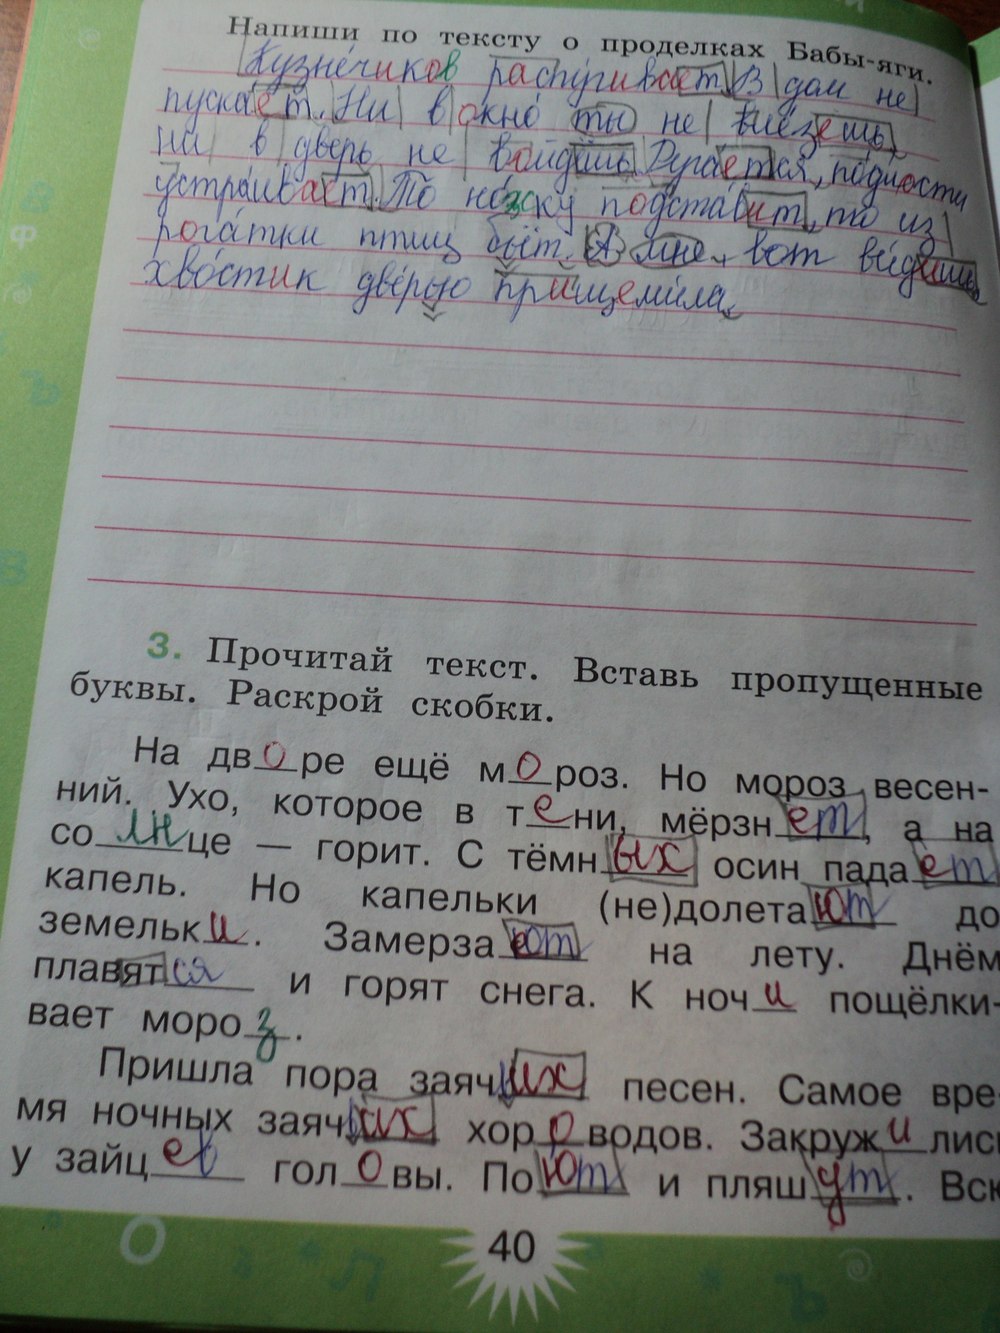 Напиши по тексту о проделках Бабы-яги.
Кузнечиков распугивает. В дом не
пускает. Ни в окно ты не влезешь,
ни в дверь не войдёшь. Ругается, подлости
устраивает. То ножку подставит, то из
рогатки птиц бьёт. А мне, вот видишь,
хвостик дверью прищемила.
3. Прочитай текст. Вставь пропущенные
буквы. Раскрой скобки.
На дворе ещё мороз. Но мороз весен-
ний. Ухо, которое в тени, мёрзнет, а на
солнце — горит. С тёмных осин падает
капель. Но капельки (не)долетают до
земельки. Замерзают на лету. Днём
плавятся и горят снега. К ночи пощёлки-
вает мороз.
Пришла пора заячьих песен. Самое вре-
мя ночных заячьих хороводов. Закружились
у зайцев головы. Поют и пляшут. Вск
40